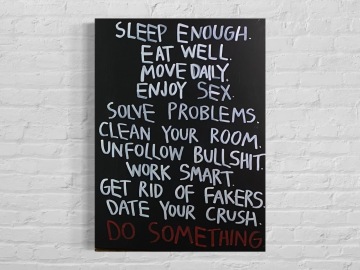 SLEEP ENOUGH.
EAT WELL.
MOVE DAILY.
ENJOY SEX.
SOLVE PROBLEMS.
CLEAN YOUR ROOM.
UNFOLLOW BULLSHIT.
WORK SMART.
GET RID OF FAKERS.
DATE YOUR CRUSH.
DO SOMETHING